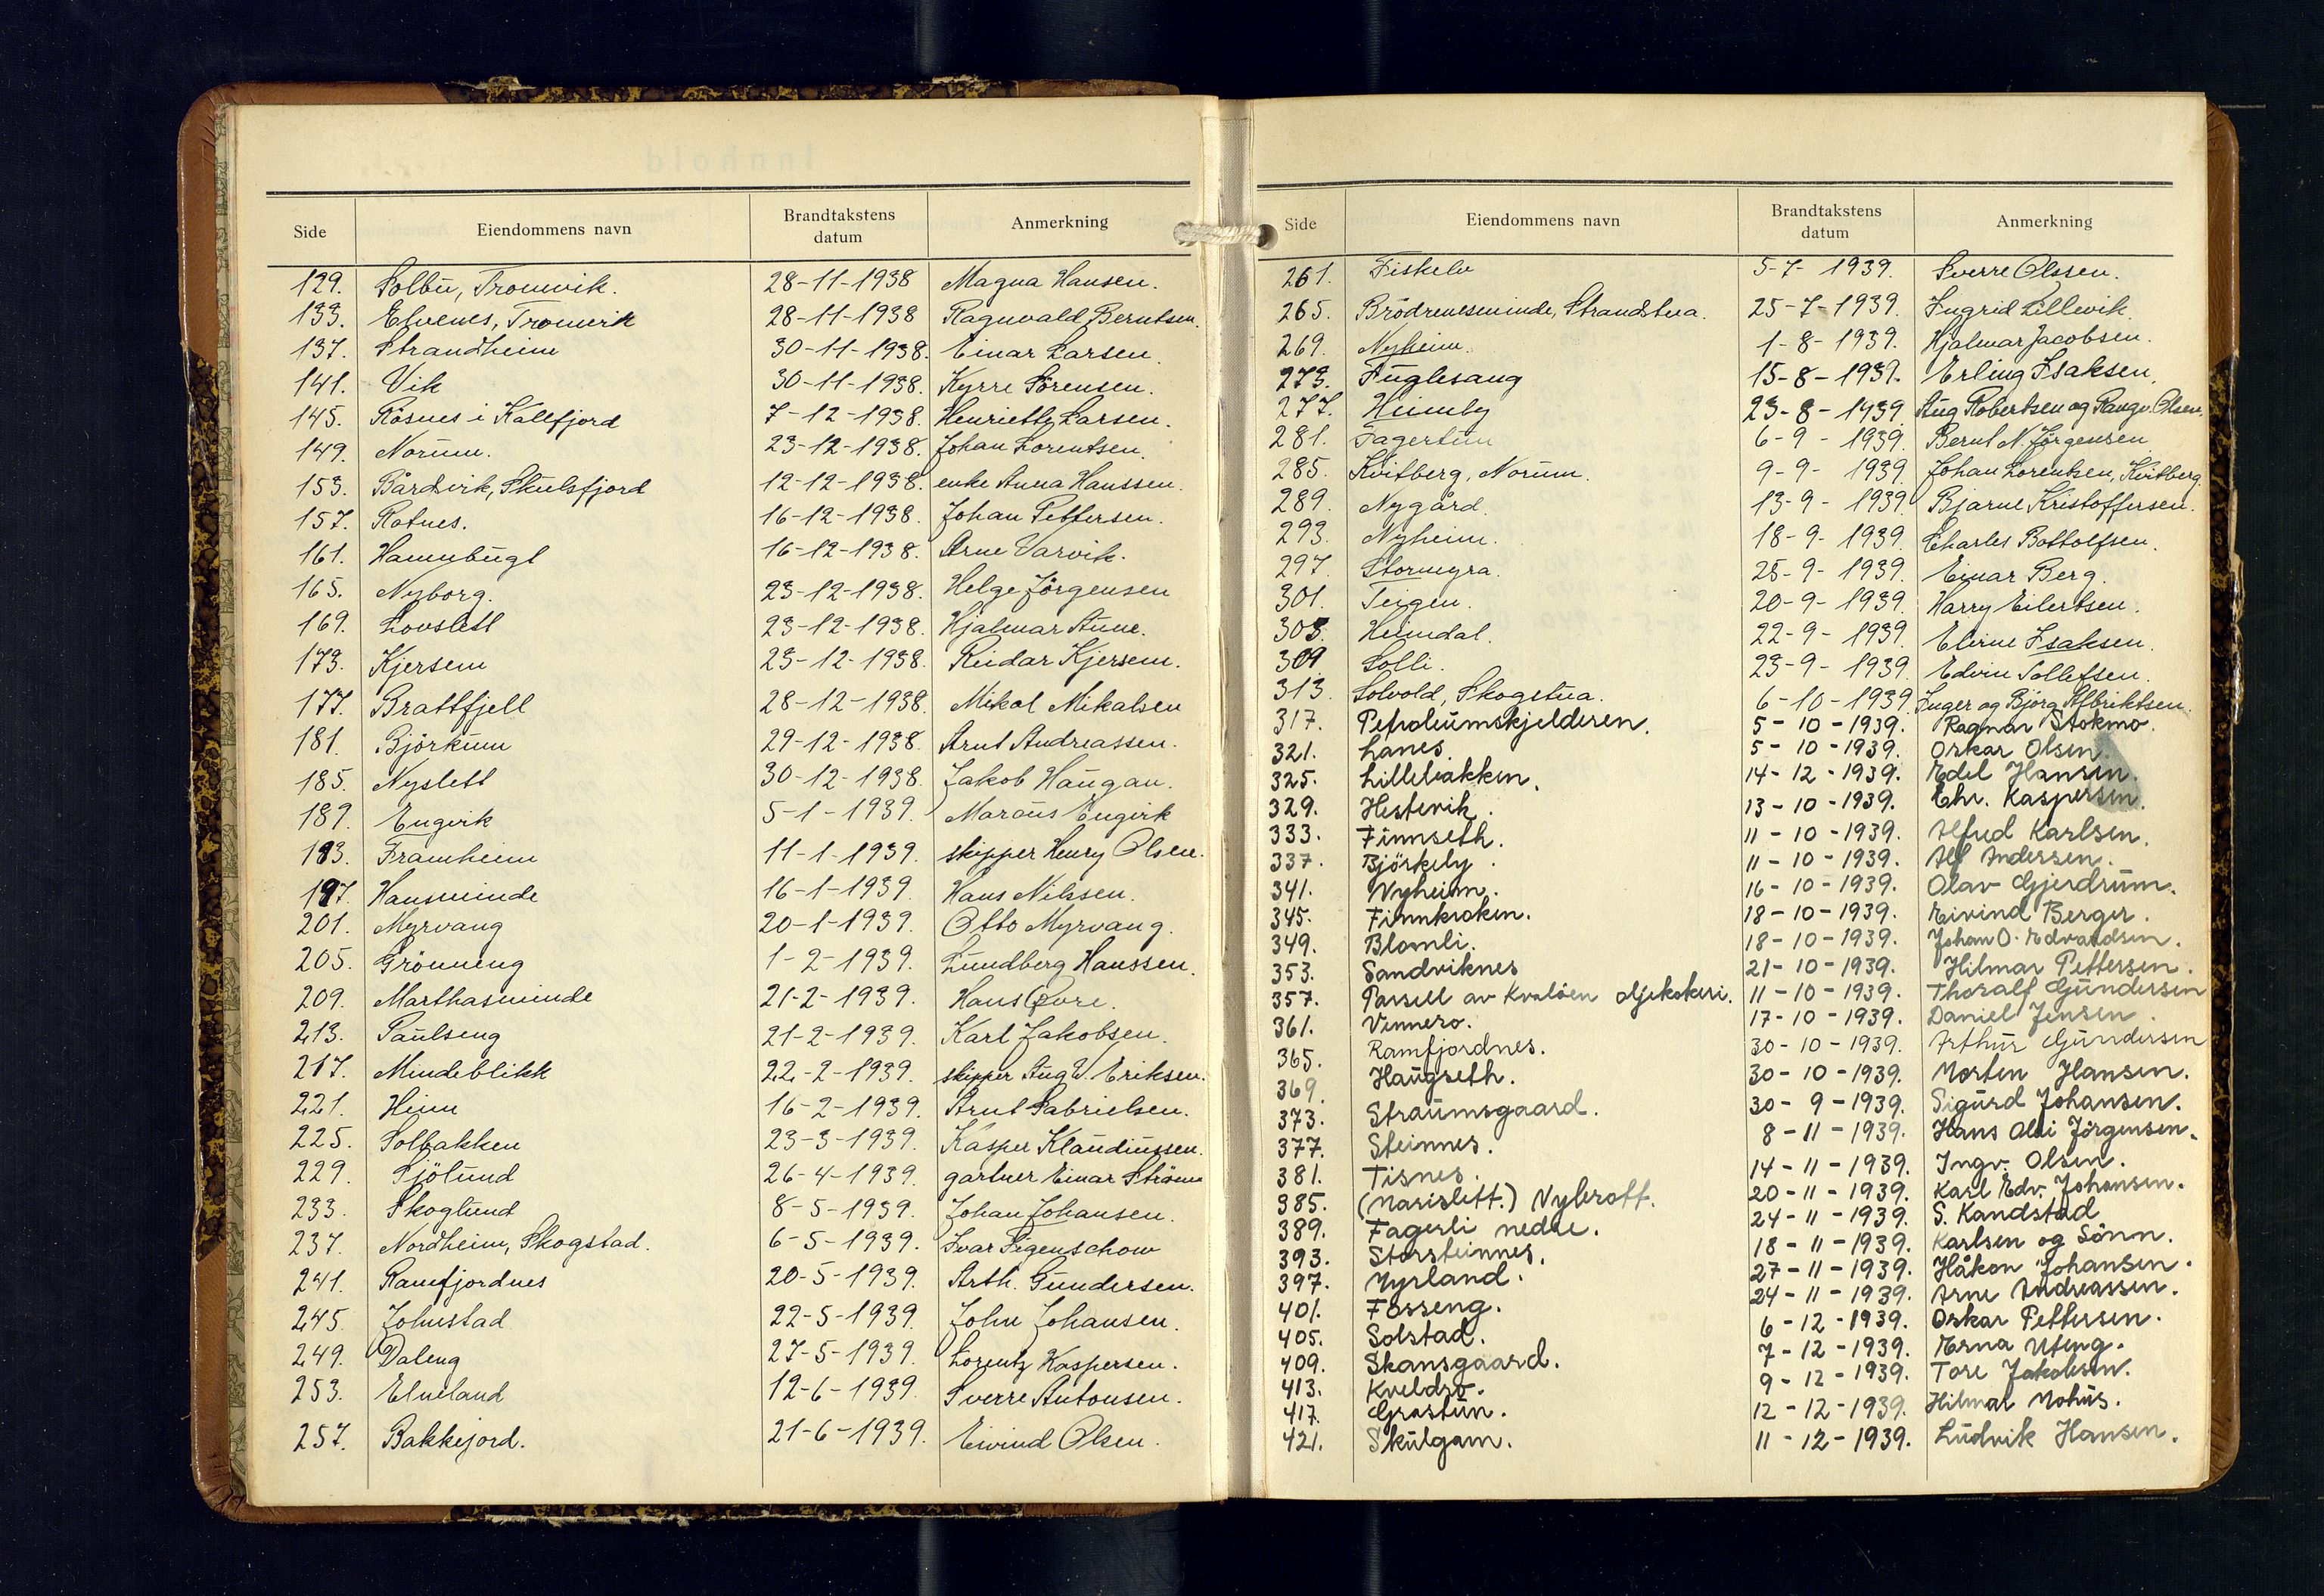 Side Eiendommens navn Brandtakstens datum Anmerkning
129. Solbu, Tromvik. 28-11-1938 Magna Hansen.
133. Elvenes, Tromvik 28-11-1938 Ragnvald Berntsen.
137. Strandheim 30-11-1938. Einar Larsen.
141. Vik 30-11-1938. Kyrre Sörensen.
145. Rösnes i Kallfjord 7-12-1938. Henriette Larsen.
149. Norum. 23-12-1938. Johan Lorentsen.
153. Bårdvik, Skulsfjord 12-12-1938. enke Anna Hanssen.
157. Rotnes. 16-12-1938. Johan Pettersen.
161. Hamnbugt 16-12-1938. Arne Varvik.
165. Nyborg. 23-12-1938. Helge Jörgensen
169. Lovslett 23-12-1938. Hjalmar Aune.
173. Kjersem 23-12-1938. Reidar Kjersem.
177. Brattfjell 28-12-1938. Mikal Mikalsen
181. Björkum 29-12-1938. Arnt Andreassen.
185. Nyslett 30-12-1938 Jakob Haugan.
189. Engvik 5-1-1939. Maröus Engvik
193. Framheim 11-1-1939. skipper Henry Olsen.
197. Hansminde 16-1-1939. Hans Nilssen.
201. Myrvang 20-1-1939. Otto Myrvang.
205. Grönneng 1-2-1939. Lundberg Hanssen.
209. Marthasminde 21-2-1939. Hans Øvre.
213. Paulseng 21-2-1939. Karl Jakobsen.
217. Mindeblikk 22-2-1939. skipper Aug W. Eriksen.
221. Heim 16-2-1939. Arnt Gabrielsen.
225. Solbakken 23-3-1939. Kasper Klaudiussen.
229. Sjölund 26-4-1939. gartner Einar Ström
233. Skoglund 8-5-1939. Johan Johansen.
237. Nordheim, Skogstad. 6-5-1939. Ivar Figenschow
241. Ramfjordnes 20-5-1939. Arth. Gundersen.
245. Johnstad 22-5-1939. John Johansen.
249. Daleng 27-5-1939. Lorentz Kaspersen.
253. Elveland 12-6-1939. Sverre Antonsen.
257. Bakkejord. 21-6-1939. Eivind Olsen.
Side Eiendommens navn Brandtakstens datum Anmerkning
261. Fiskelv 5-7-1939. Sverre Olssen.
265. Brödrenesminde, Strandstua. 25-7-1939. Ingrid Lillevik.
269. Nyheim. 1-8-1939. Hjalmar Jacobsen.
273. Fuglesang 15-8-1939. Erling Isaksen.
277. Heimly 23-8-1939 Aug Robertsen og Rangv. Olsen.
281. Fagertun 6-9-1939. Bernt N. Jörgensen
285. Kvitberg, Norum. 9-9-1939. Johan Lorentsen, Kvitberg.
289. Nygård. 13-9-1939. Bjarne Kristoffersen.
293. Nyheim. 18-9-1939. Charles Bottolfsen.
297. Stormyra. 25-9-1939. Einar Berg.
301. Teigen. 20-9-1939. Harry Eilertsen.
305. Heimdal. 22-9-1939. Eline Isaksen.
309. Solli. 23-9-1939. Edvin Tollefsen.
313. Solvold, Skogstua. 6-10-1939. Inger og Björg Albriktsen.
317. Petroleumskjelderen. 5-10-1939. Ragnar Stokmo.
321. Lanes. 5-10-1939. Oskar Olsen.
325. Lillebakken. 14-12-1939. Edel Hansen.
329. Hestevik. 13-10-1939. Chr. Kaspersen.
333. Finnseth. 11-10-1939. Alfred Karlsen.
337. Björkely. 11-10-1939. Alf Andersen.
341. Nyheim. 16-10-1939. Olav Gjerdrum.
345. Finnkroken. 18-10-1939. Eivind Berger.
349. Blomli. 18-10-1939. Johan O. Edvardsen.
353. Sandviknes 21-10-1939. Hilmar Pettersen.
357. Parsell av Kvalöen oljekokeri. 11-10-1939. Thoralf Gundersen
361. Vennero. 17-10-1939. Daniel Jensen.
365. Ramfjordnes. 30-10-1939. Arthur Gundersen
369. Haugseth. 30-10-1939. Morten Hansen.
373. Straumsgaard. 30-9-1939. Sigurd Johansen.
377. Steinnes. 8-11-1939. Hans Olai Jörgensen.
381. Tisnes. 14-11-1939. Ingv. Olsen.
385. (Marislett.) Nybrott. 20-11-1939. Karl Edv. Johansen.
389. Fagerli nedre. 24-11-1939. S. Kandstad
393. Storsteinnes. 18-11-1939. Karlsen og Sönn.
397. Myrland. 27-11-1939. Håkon Johansen.
401. Fosseng. 24-11-1939. Arne Andreassen.
405. Solstad. 6-12-1939. Oskar Pettersen.
409. Skansgaard. 7-12-1939. Erna Uteng.
413. Kveldro. 9-12-1939. Tore Jakobsen.
417. Grastun. 12-12-1939. Hilmar Mohus.
421. Skulgam. 11-12-1939. Ludvik Hansen.